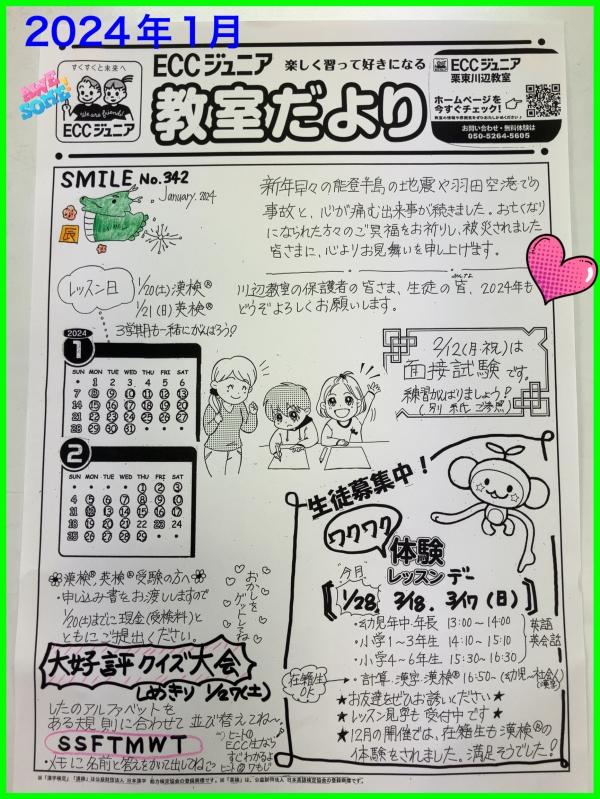 2024年1月
AWESOME
すくすくと未来へ
We are friends!
ECCジュニア
ECCジュニア 楽しく習って好きになる
教室だより
ECCジュニア
栗東川辺教室
ホームページを
今すぐチェック!
お問い合わせ・無料体験は
050-5264-5605
SMILE No.342
January. 2024
辰
新年早々の能登半島の地震や羽田空港での
事故と、心が痛む出来事が続きました。お亡くなり
になられた方々のご冥福をお祈りし、被災されました
皆さまに、心よりお見舞いを申し上げます。
川辺教室の保護者の皆さま、生徒の皆、2024年も
どうぞよろしくお願いします。
レッスン日
1/20(土)漢検®
1/21(日)英検®
3学期も一緒にがんばろう?
2024
1
SUN MON TUE WED THU FRI SAT
・ 1 2 3 4 5 6
7 8 9 10 11 12 13
14 15 16 17 18 19 20
21 22 23 24 25 26 27
28 29 30 31 ・ ・ ・
2
SUN MON TUE WED THU FRI SAT
・ ・ ・ ・ 1 2 3
4 5 6 7 8 9 10
11 12 13 14 15 16 17
18 19 20 21 22 23 24
25 26 27 28 29 ・ ・
2/12(月・祝)は
面接試験です。
練習がんばりましょう?
(別紙ご参照)
生徒募集中!
ワクワク
体験
レッスンデー
今月
1/28, 2/18. 3/17(日)
・幼児年中・年長 13:00~14:00
・小学1~3年生 ・14:10~15:10
・小学4~6年生 ・15:30~16:30
英語
英会話
在籍生
OK
・計算・漢字・漢検® 16:50~(幼児~社会人)
(漢字)
★お友達をぜひお誘いください★
★レッスン見学も受付中です★
★12月の開催では、在籍生も漢検®の
体験をされました。満足そうでした!
漢検®、英検®受験の方へ
・申し込み書をお渡ししますので
1/20(土)までに現金(受検料)と
ともにご提出ください。
おかしを
ゲットしてね
大好評クイズ大会
しめきり 1/27(土)
したのアルファベットを
ある規則に合わせて並び替えてね~
SSFTMWT
・メモに名前と答えをかいて出してね
ヒントの
ECC生なら
すぐわかるよ
ヒント②7もじ
※「漢字検定」「漢検」は公益財団法人 日本漢字能力検定協会の登録商標です。※「英検」は、公益財団法人 日本英語検定協会の登録商標です。